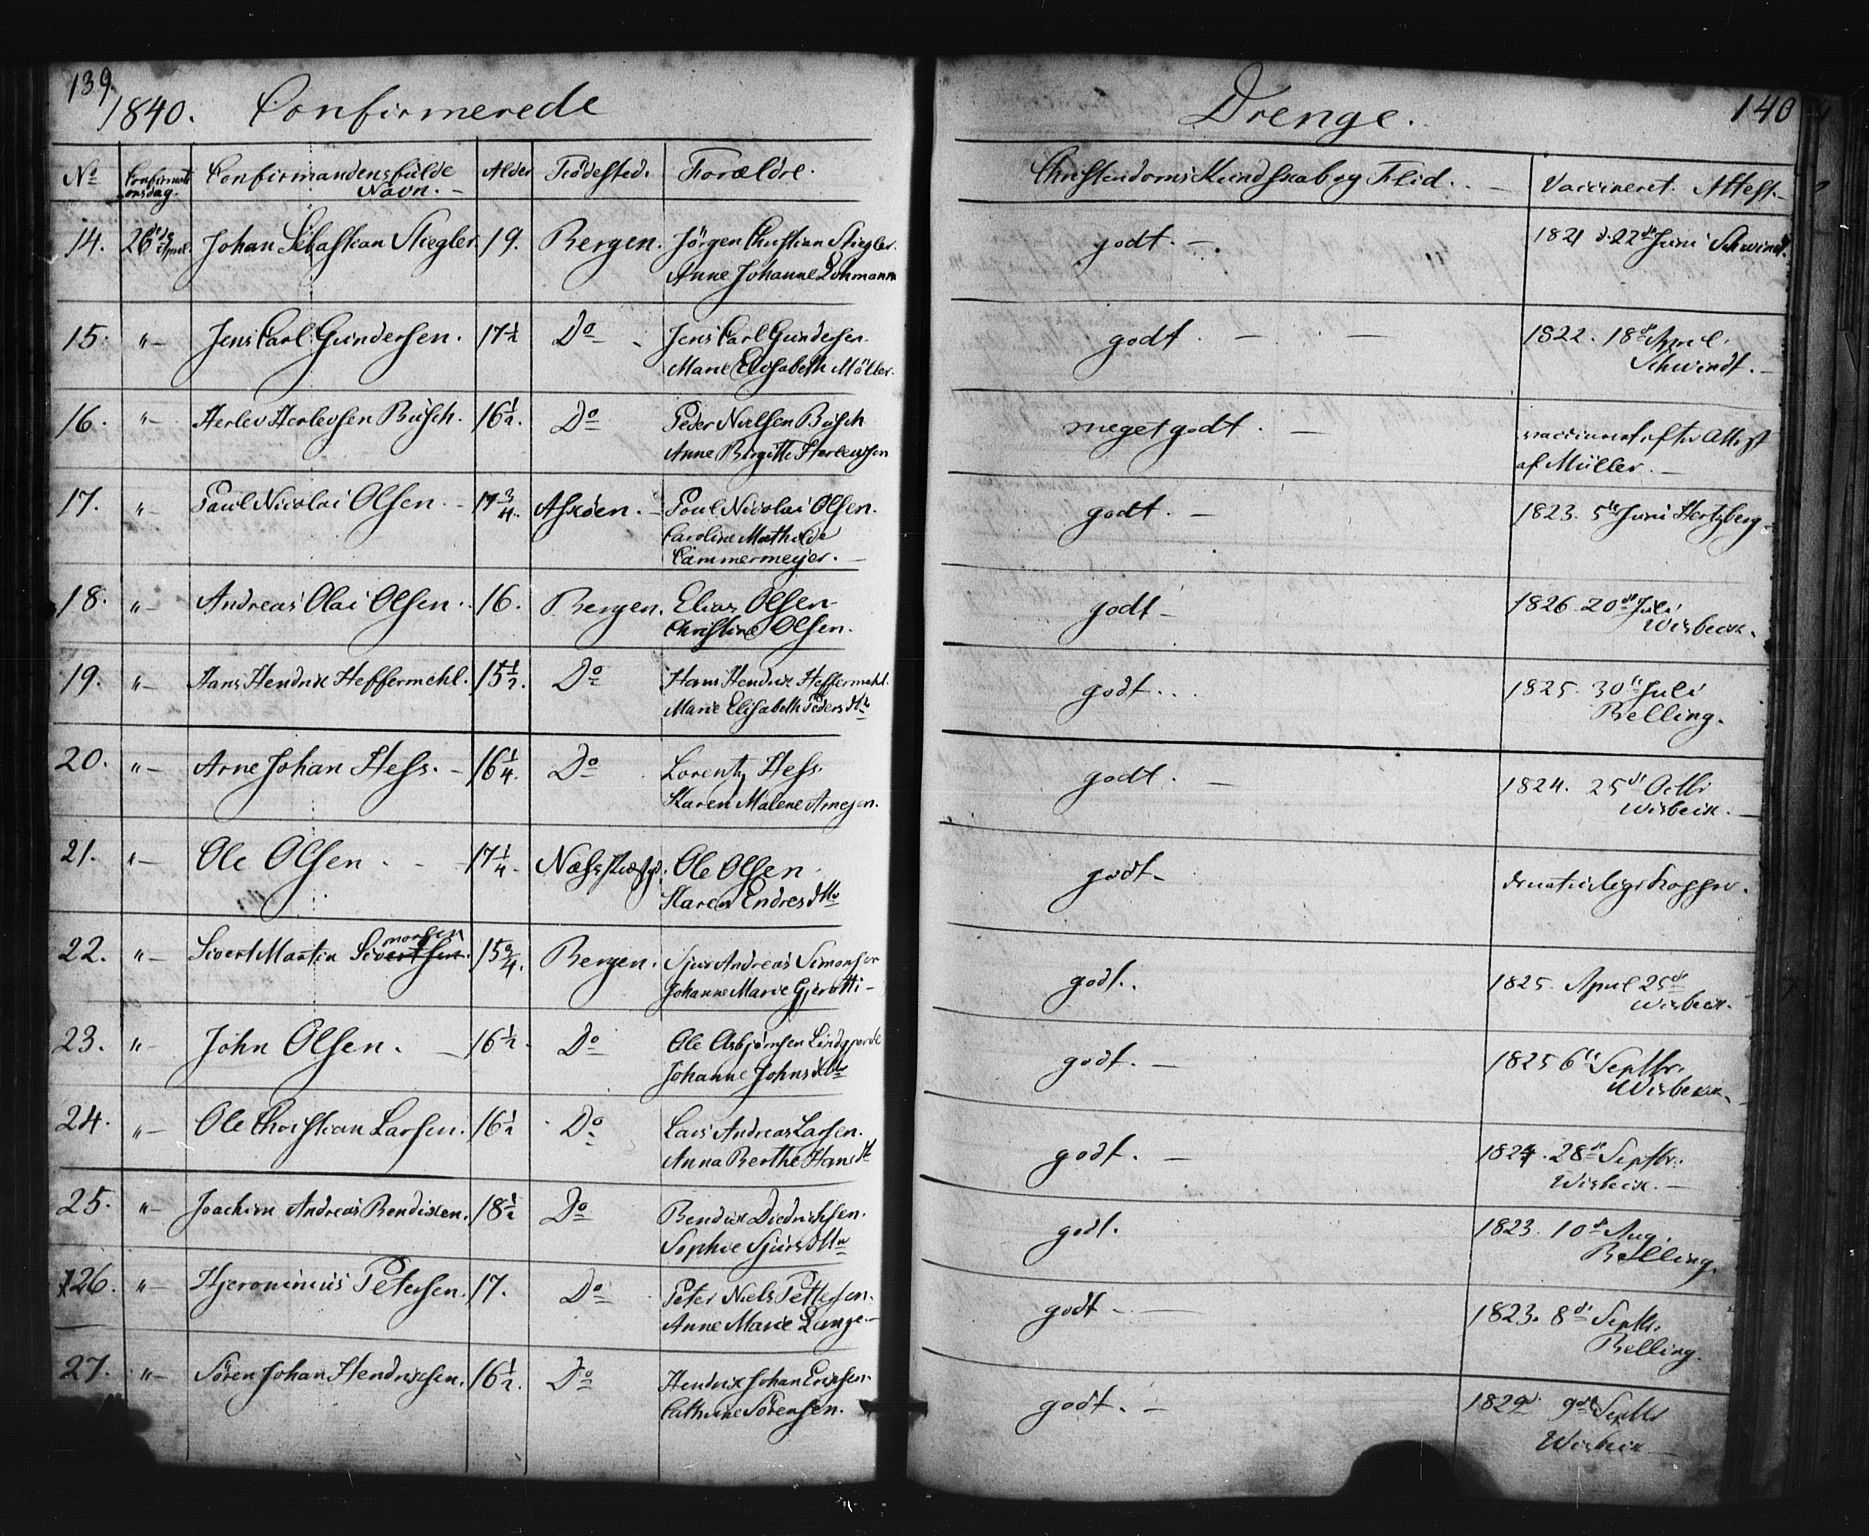 139.
1840. Confirmerede
Drenge. 140
No Confirmationsdag. Confirmandens fulde Navn. Alder Födested. Forældre. Christendoms Kundskab og Flid. Vaccineret. Attest.
14. 26de April. Johan Sebastian Stiegler 19. Bergen. Jörgen Christian Stiegler. godt. 1821 d. 22de Juni Schwindt.
Anne Johanne Lohmann
15. " Jens Carl Gundersen. 17 1/2 Do Jens Carl Gundersen. godt. 1822. 18de April.
Marie Elisabeth Möller. Schwindt.
16. " Herlev Herlevsen Busch. 16 1/2. Do Peder Nielsen Busch meget godt. vaccineret efter Attest
Anne Birgitte Herlevsen af Müller.
17. " Paul Nicolai Olsen. 17 3/4. Askøen. Poul Nicolai Olsen. godt. 1823. 5te Juni Hertzberg.
Caroline Mathilde
Cammermeyer.
18. " Andreas Olai Olsen. 16. Bergen. Elias Olsen godt 1826 20de Juli
Christine Olsen. Wisbeck.
19. " Hans Hendrik Heffermehl. 15 1/2. Do Hans Hendrik Heffermehl. godt. 1825. 30te Juli
Marie Elisabeth Pedersdtr Belling.
20. " Arne Johan Hess. 16 1/4. Do Lorentz Hess. godt. 1824. 25de Octbr
Karen Malene Arnesen. Wisbeck.
21. " Ole Olsen. 17 1/4. Ole Olsen. godt. de naturlige Kopper.
Karen Endresdtr
22. " Sivert Martin Sivertsen. 15 3/4. Bergen. Sjur Andreas Simonsen godt. 1825. April 25de
Johanne Marie Gjerotti Wisbeck.
23. " John Olsen. 16 1/2. Do Ole Asbjørnsen godt. 1825 6te Septbr.
Johanne Johnsdtr Wisbeck.
24. " Ole Christian Larsen. 16 1/2 Do Lars Andreas Larsen. godt. 1824. 28de Septbr.
Anna Berthe Hansdt Wisbeck.
25. " Joachim Andreas Bendixen. 18 1/2 Do Bendix Diedrichsen. godt. 1823. 10de Aug.
Sophie Sjursdtr Belling.
126. " Hjeronimus Petersen. 17. Do Peter Niels Pettersen. godt 1823. 8de Septbr.
Anne Marie Lange. Belling.
27. " Sören Johan Hendriksen. 16 1/2. Do Hendrik Johan Eriksen. godt. 9de Septbr
Cathrine Sörensen. Wisbeck